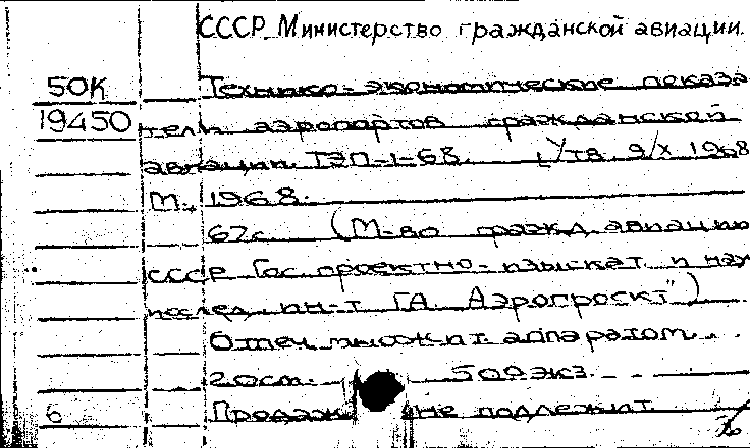 СССР Министерство гражданской авиации.
50К Технико-экономические показа
19450 тели аэропортов гражданской
авиации. ТЭП-1-68. Утв. 9/X 1968
М., 1968.
62с. (М-во гражд. авиации
СССР Гос. проектно-изыскат. и науч
исслед. ин-т ГА "Аэропроект")
Отпеч. множит. аппаратом.
20см. 500экз.
6 Продаже не подлежит.